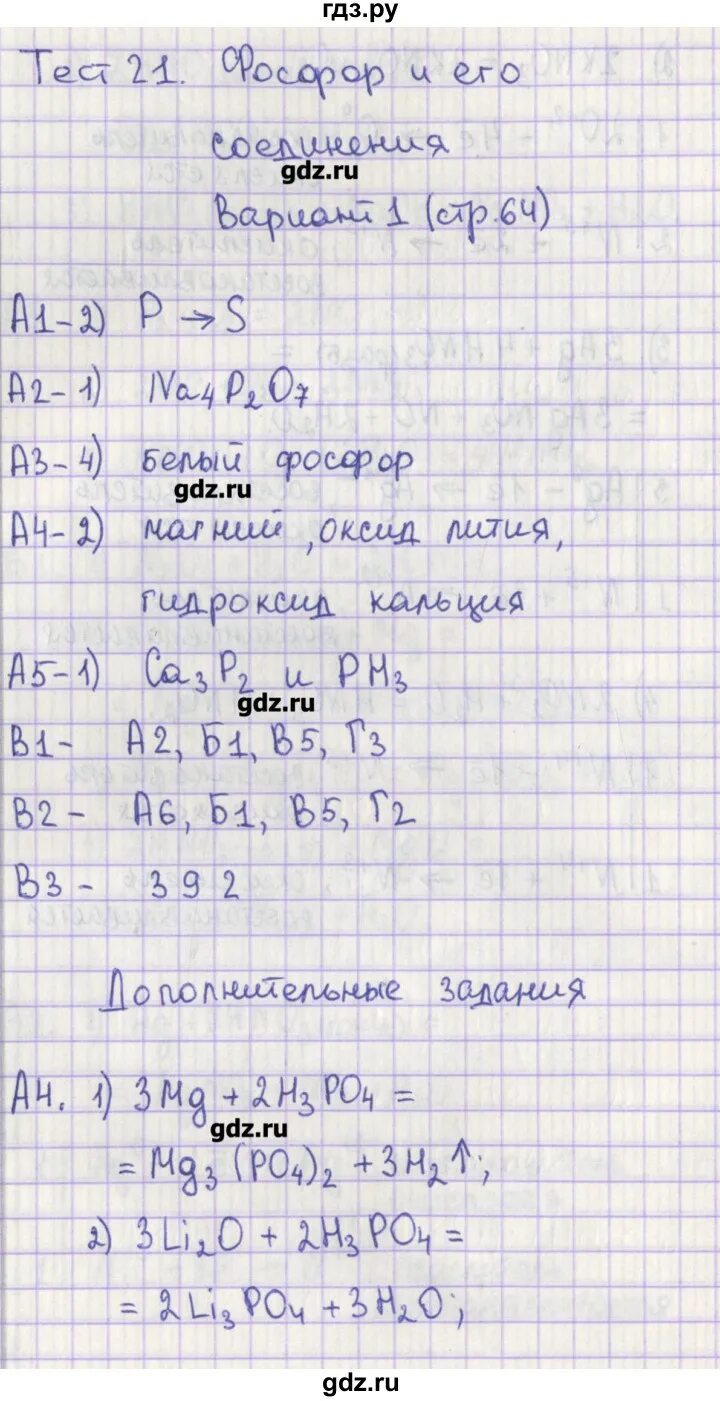 гдз.ру
Тест 21. Фосфор и его
соединения
gdz.ru
Вариант 1 (стр.64)
А1-2) P → S
А2-1) Na4P2O7
А3-4) белый фосфор
gdz.ru
А4-2) магний, оксид лития,
гидроксид кальция
А5-1) Ca3P2 и PH3
gdz.ru
В1- А2, Б1, В5, Г3
В2- А6, Б1, В5, Г2
В3- 392
Дополнительные задания
А4. 1) 3Mg + 2H3PO4 =
gdz.ru
= Mg3(PO4)2 + 3H2↑;
2) 3Li2O + 2H3PO4 =
= 2Li3PO4 + 3H2O;
gdz.ru